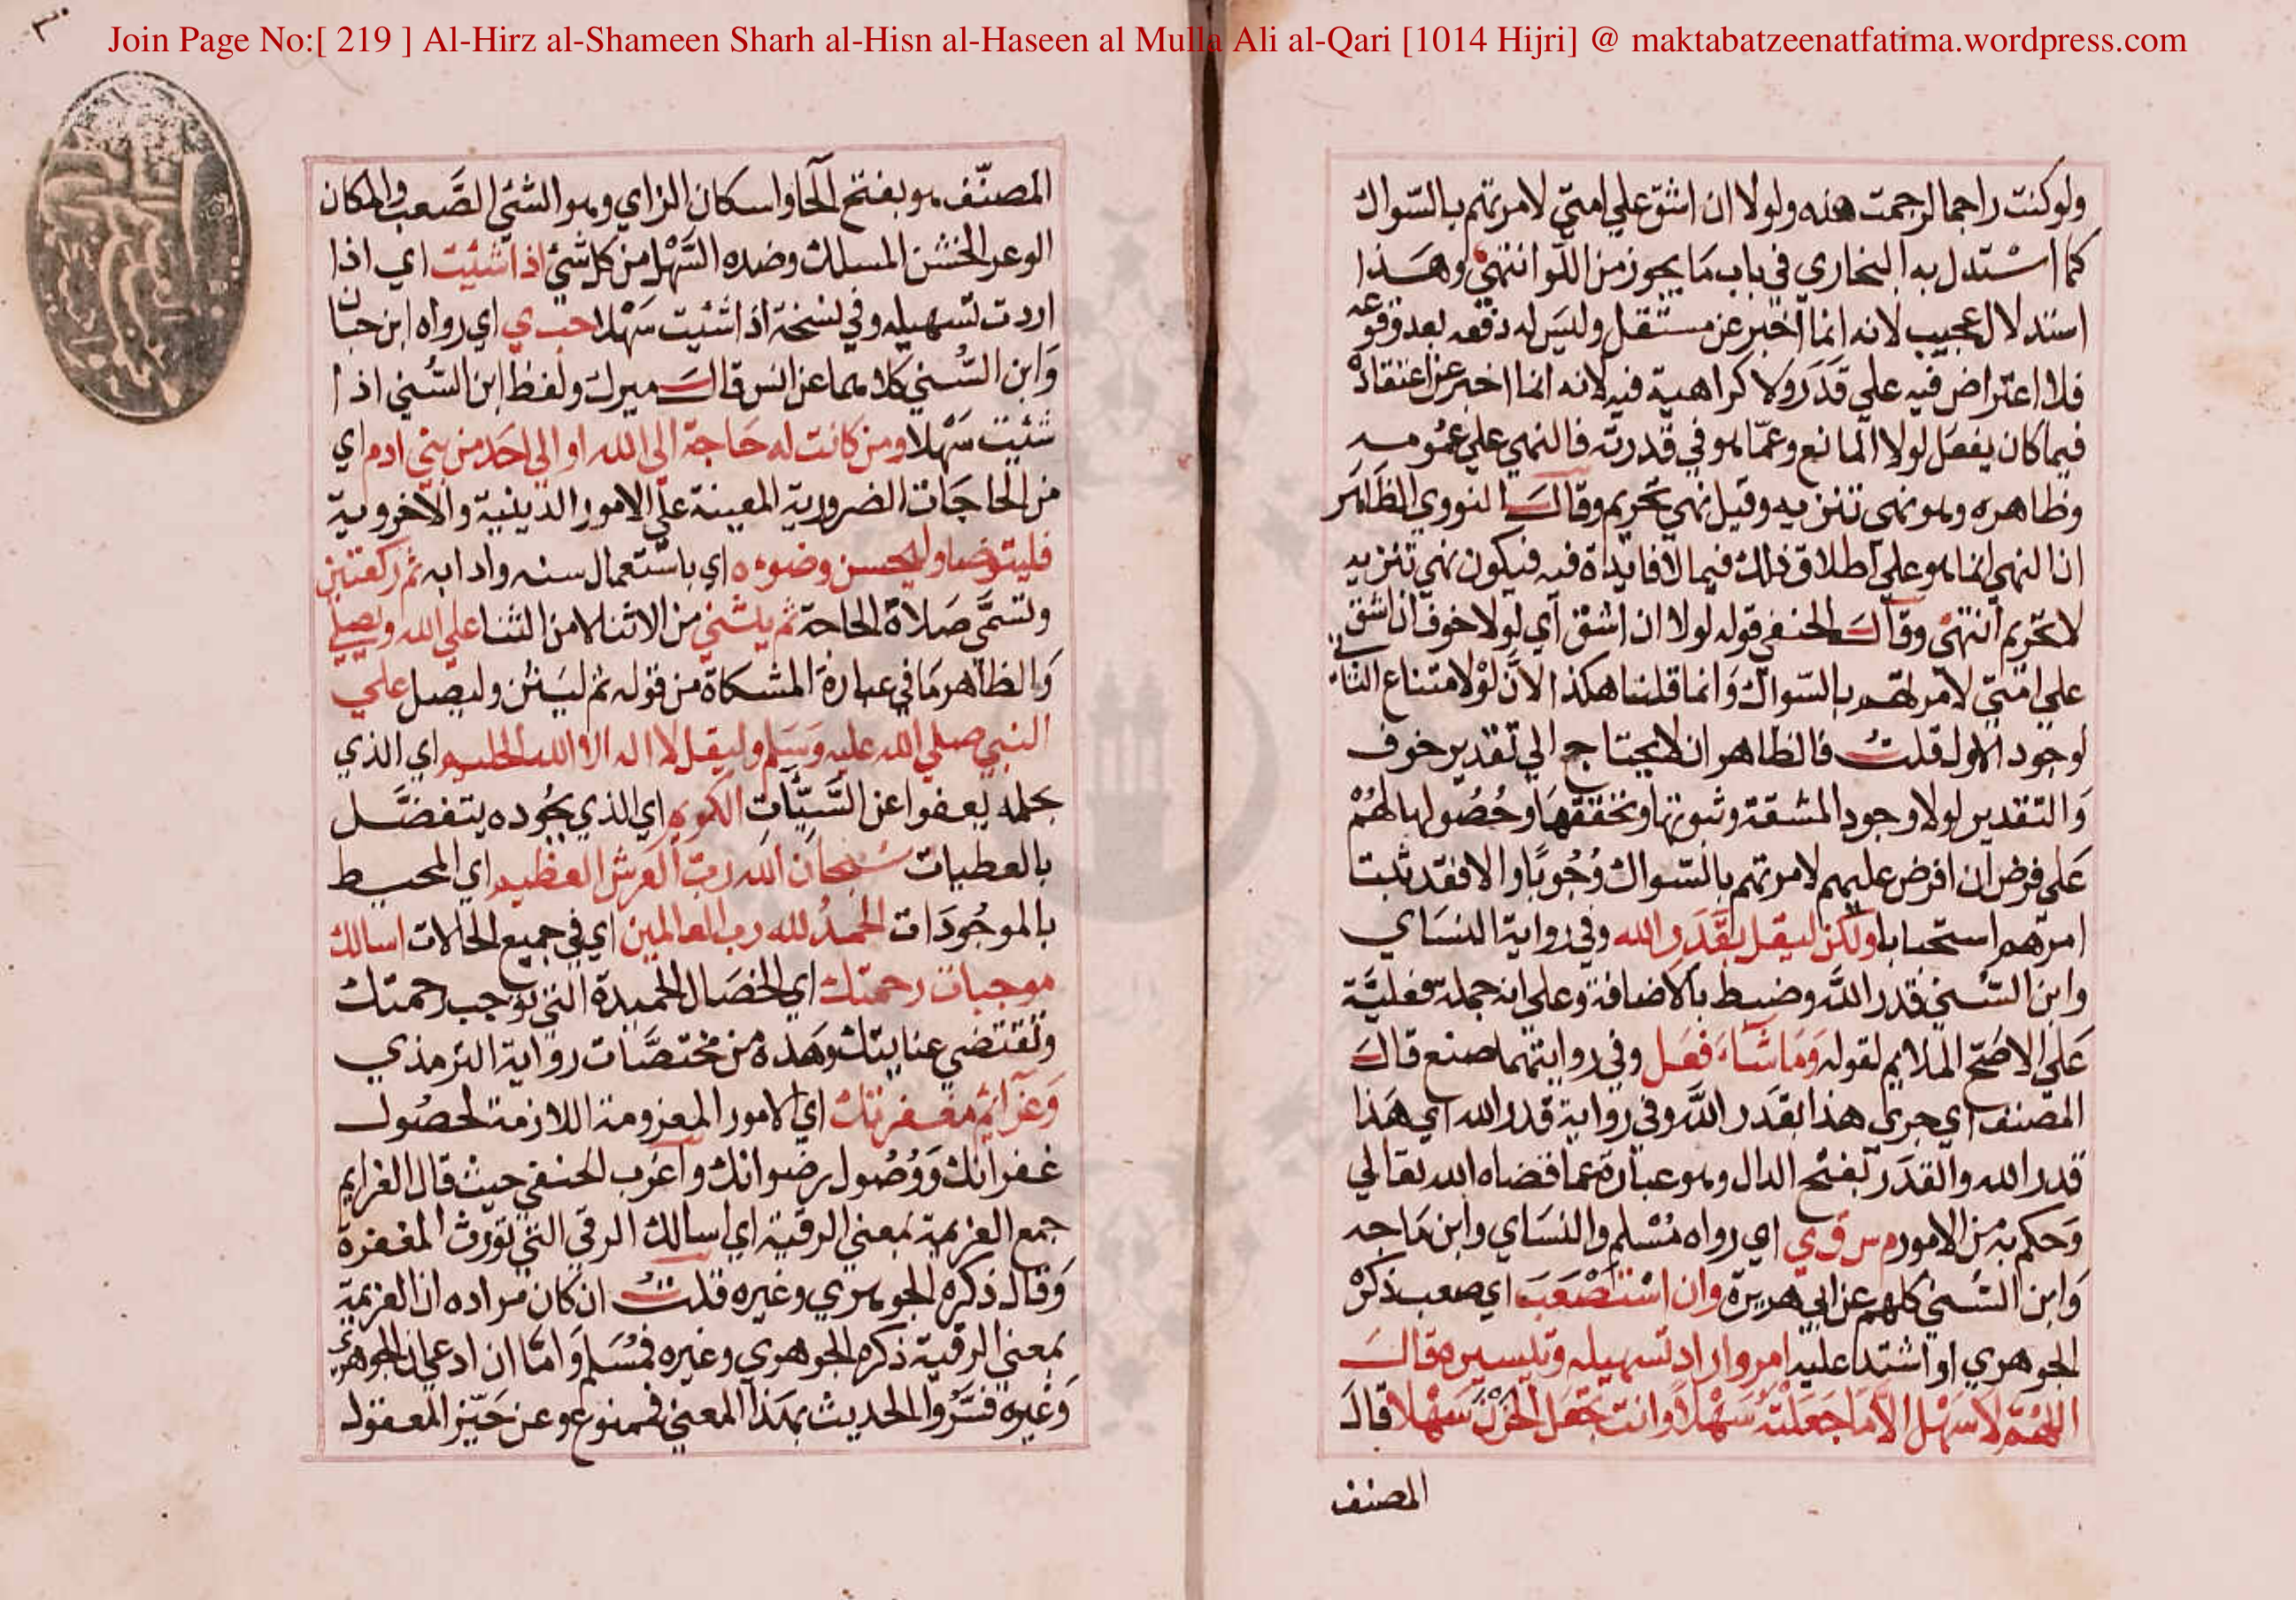 Join Page No:[ 219 ] Al-Hirz al-Shameen Sharh al-Hisn al-Haseen al Mulla Ali al-Qari [1014 Hijri] @ maktabatzeenatfatima.wordpress.com
ولو كنت راجما لرجمت هذه ولولا ان اشق علي امتي لامرتهم بالسواك
كما استدل به البخاري في باب ما يجوز من اللو انتهي وهذا
استدلال عجيب لانه انما اخبر عن مستقبل وليس له دفعه بعد وقوعه
فلا اعتراض فيه علي قدر ولا كراهية فيه لانه انما اخبر عن اعتقاده
فيما كان يفعل لولا المانع وعما هو في قدرته فالنهي علي عمومه
وظاهره وهو نهي تنزيه وقيل نهي تحريم وقال النووي الظاهر
ان النهي انما هو علي اطلاق ذلك فيما لا فايدة فيه فيكون نهي تنزيه
لا تحريم انتهي وقال الحنفي قوله لولا ان اشق اي لولا خوف ان اشق
علي امتي لامرتهم بالسواك وانما قلنا هكذا لان لولا لامتناع الثاني
لوجود الاول قلت فالظاهر ان لا يحتاج الي تقدير خوف
والتقدير لولا وجود المشقة وثبوتها وتحققها وحصولها لهم
علي فرض ان افرض عليهم لامرتهم بالسواك وجوبا والا فقد ثبت
امرهم استحبابا ولكن ليقل بقدر الله وفي رواية النساي
وابن السني قدر الله وضبط بالاضافة وعلي انه جملة فعلية
علي الاصح الملايم لقوله وما شاء فعل وفي روايتهما صنع قال
المصنف اي جري هذا بقدر الله وفي رواية قدر الله اي هذا
قدر الله والقدر بفتح الدال وهو عبارة عما قضاه الله تعالي
وحكم به من الامور م س ق ي اي رواه مسلم والنساي وابن ماجه
وابن السني كلهم عن ابي هريرة وان استصعب اي صعب ذكره
الجوهري او اشتد عليه امر واراد تسهيله وتيسيره قال
اللهم لا سهل الا ما جعلته سهلا وانت تجعل الحزن سهلا قال
المصنف
المصنف هو بفتح الحا واسكان الزاي وهو الشئ الصعب والمكان
الوعر الخشن المسلك وضده السهل من كل شئ اذا شئت اي اذا
اردت تسهيله وفي نسخة اذا شئت سهلا حب ي اي رواه ابن حبان
وابن السني كلاهما عن انس قال ميرك ولفظ ابن السني اذا
شئت سهلا ومن كانت له حاجة الي الله او الي احد من بني ادم اي
من الحاجات الضرورية المعينة علي الامور الدينية والاخروية
فليتوضا وليحسن وضوءه اي باستعمال سننه وادابه ثم ركعتين
وتسمي صلاة الحاجة ثم يثني من الاثنا لا من الثنا علي الله ويصلي
والظاهر ما في عبارة المشكاة من قوله ثم ليثن وليصل علي
النبي صلي الله عليه وسلم وليقل لا اله الا الله الحليم اي الذي
بحلمه يعفوا عن السيّات الكريم اي الذي بجوده يتفضل
بالعطيات سبحان الله رب العرش العظيم اي المحيط
بالموجودات الحمد لله رب العالمين اي في جميع الحالات اسالك
موجبات رحمتك اي الخصال الحميدة التي توجب رحمتك
وتقتضي عنايتك وهذه من مختصات رواية الترمذي
وعزائم مغفرتك اي الامور المعزومة اللازمة لحصول
غفرانك ووصول رضوانك واغرب الحنفي حيث قال العزايم
جمع العزيمة بمعني الرقية اي اسالك الرقي التي تورث المغفرة
وقال ذكره الجوهري وغيره قلت ان كان مراده ان العزيمة
بمعني الرقية ذكره الجوهري وغيره فمسلم واما ان ادعي ان الجوهري
وغيره فسروا الحديث بهذا المعني فممنوع وعن حيز المعقول